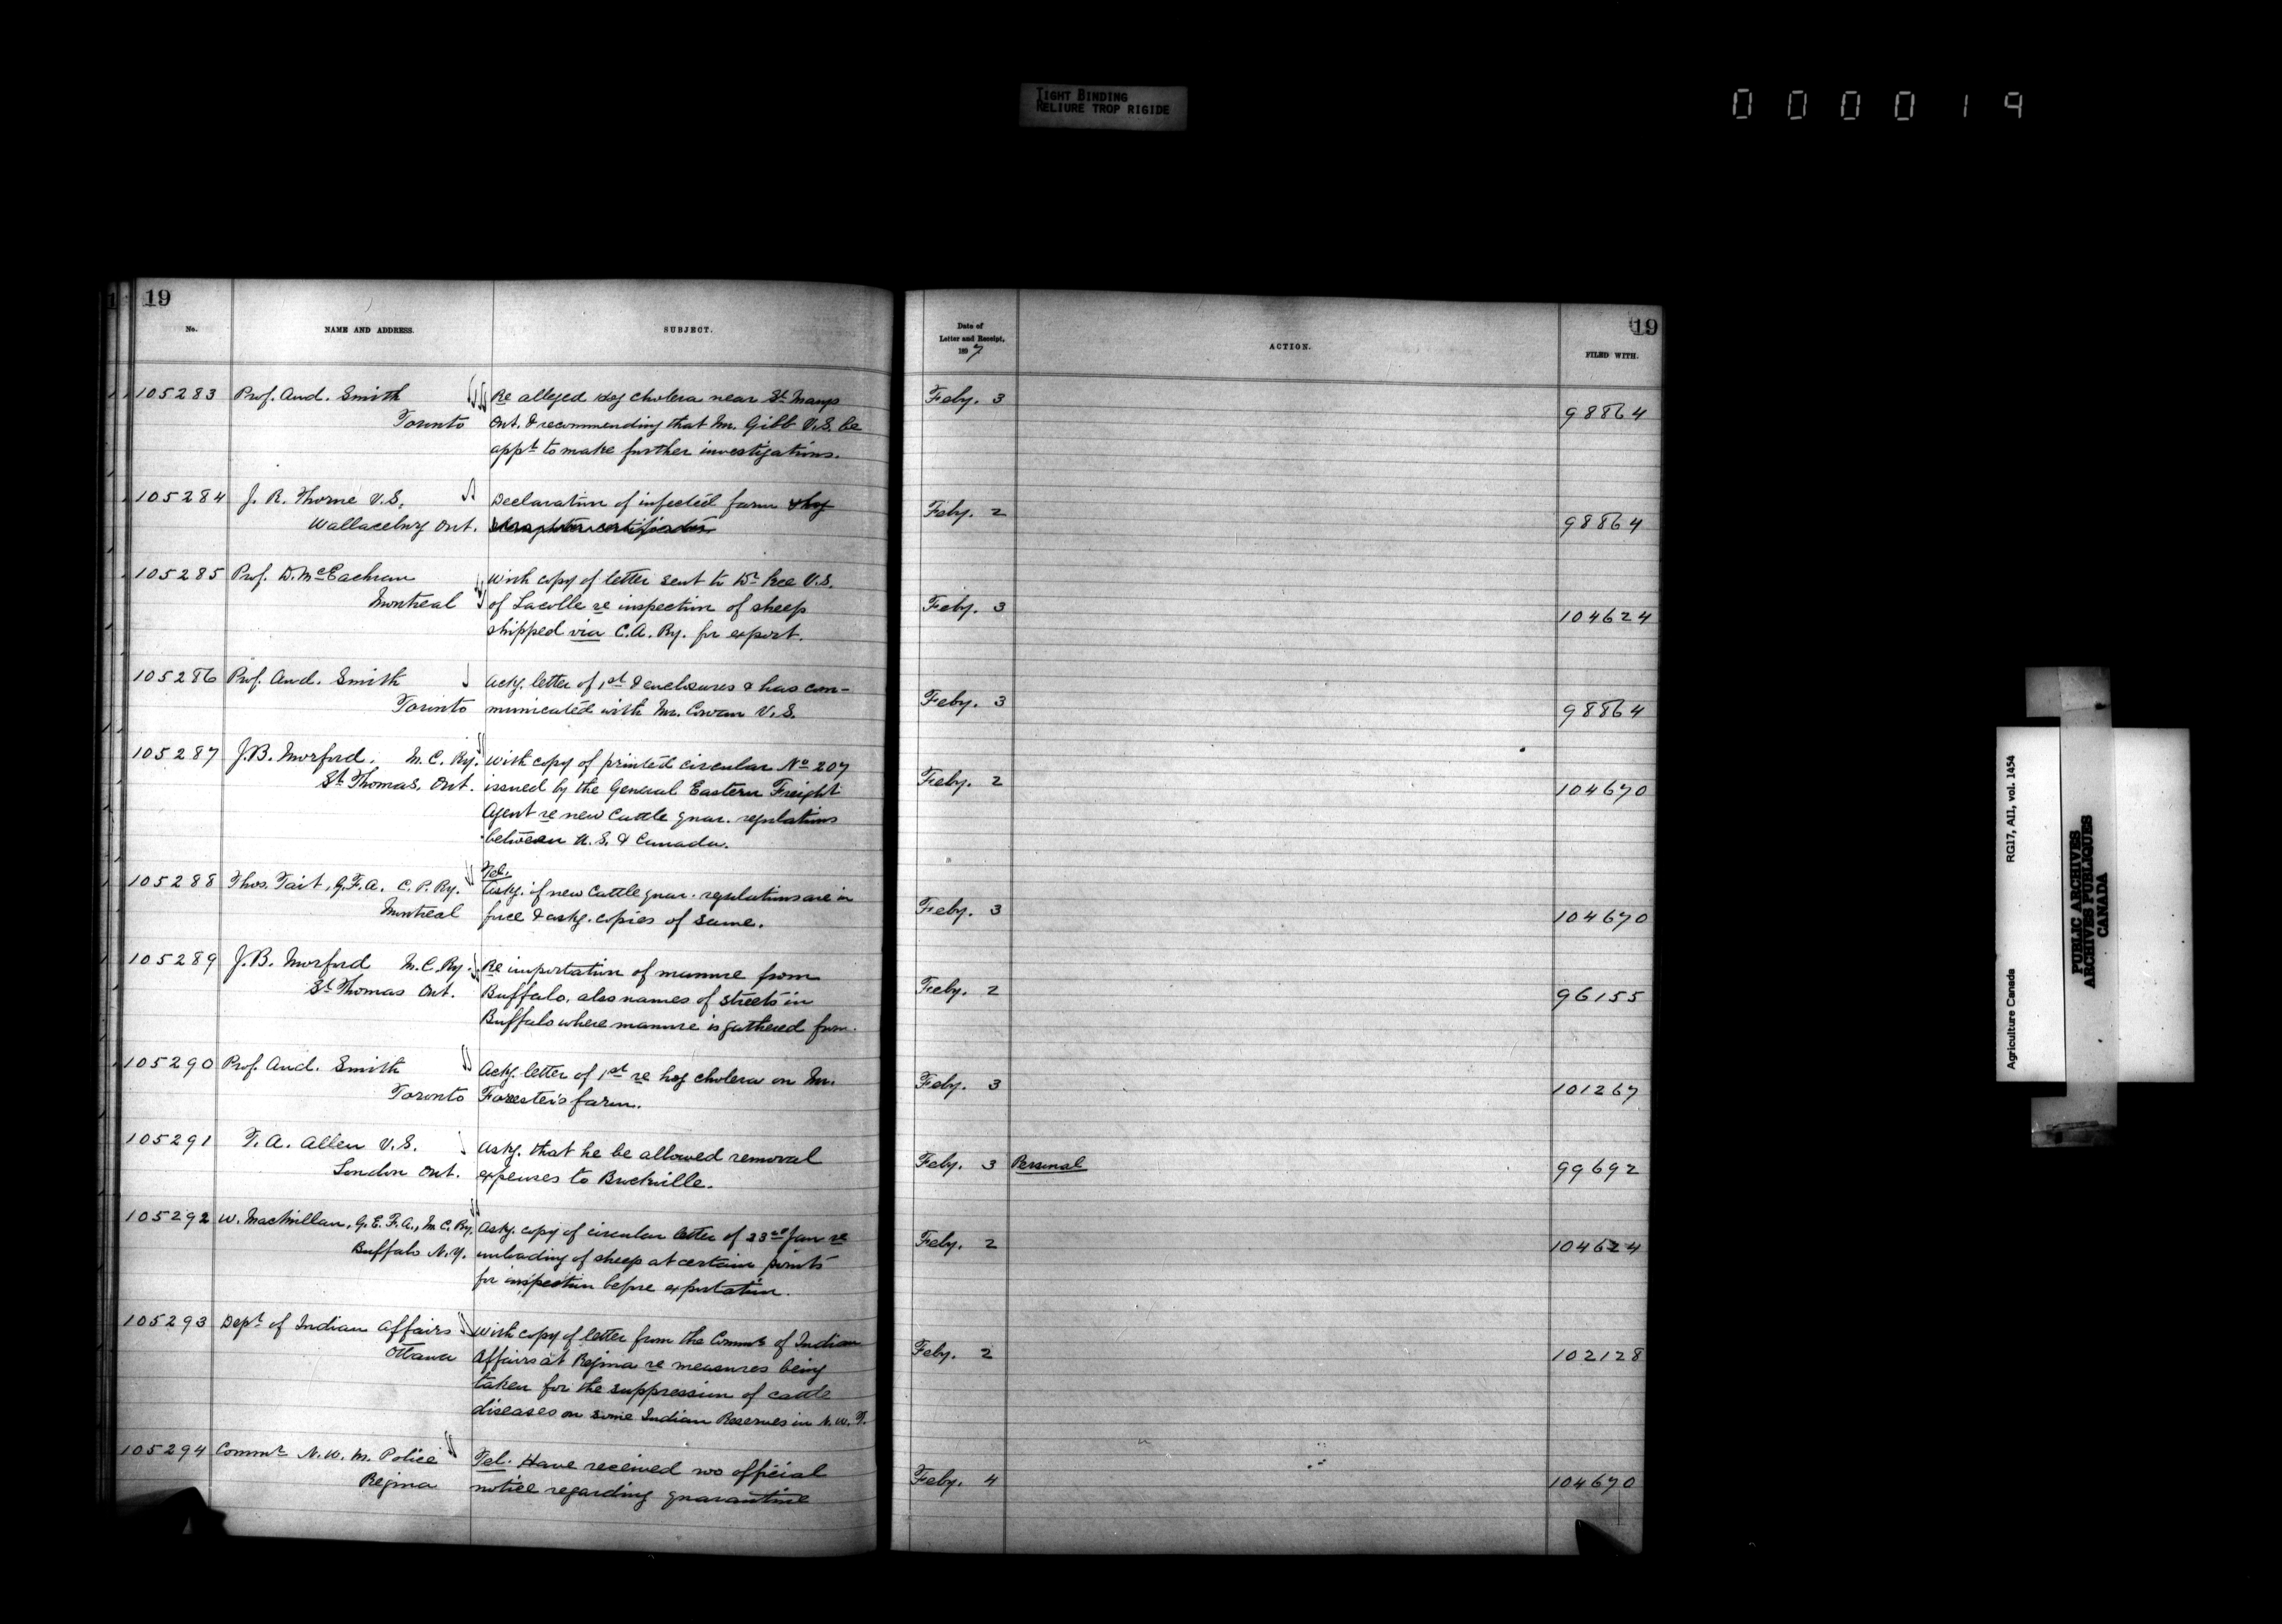 TIGHT BINDING
RELIURE TROP RIGIDE
000019
19
No.
NAME AND ADDRESS.
SUBJECT.
105283 Prof. And. Smith
Toronto
Re alleged hog cholera near St. Marys
Ont. & recommending that Mr. Gibb V.S. be
appt to make further investigations.
105284 J. R. Thorne V.S.
Wallaceburg Ont.
Declaration of infected farm & hog
slaughter certificates
105285 Prof. D. McEachran
Montreal
With copy of letter sent to Dr. Kee V.S.
of Lacolle re inspection of sheep
shipped via C.A. Ry. for export.
105286 Prof. And. Smith
Toronto
Ackg. letter of 1st & enclosures & has com-
municated with Mr. Cowan V.S.
105287 J.B. Morford. M.C. Ry.
St. Thomas, Ont.
With copy of printed circular No 207
issued by the General Eastern Freight
Agent re new Cattle quar. regulations
between U.S. & Canada.
105288 Thos. Tait, G.F.A. C.P. Ry.
Montreal
Tel.
Askg. if new Cattle quar. regulations are in
force & askg. copies of same.
105289 J.B. Morford M.C. Ry.
St. Thomas Ont.
Re importation of manure from
Buffalo, also names of streets in
Buffalo where manure is gathered from.
105290 Prof. And. Smith
Toronto
Ackg. letter of 1st re hog cholera on Mr.
Forester's farm.
105291 T. A. Allen V.S.
London Ont.
Askg. that he be allowed removal
expenses to Brockville.
105292 W. MacMillan, G.E.F.A., M.C. Ry.
Buffalo N.Y.
Askg. copy of circular letter of 23rd Jan re
unloading of sheep at certain points
for inspection before exportation.
105293 Dept of Indian Affairs
Ottawa
With copy of letter from the Commr of Indian
Affairs at Regina re measures being
taken for the suppression of cattle
diseases on some Indian Reserves in N.W.T.
105294 Commr N.W.M. Police
Regina
Tel. Have received no official
notice regarding quarantine
19
Date of
Letter and Receipt,
1897
ACTION.
FILED WITH.
Feby. 3 98864
Feby. 2 98864
Feby. 3 104624
Feby. 3 98864
Feby. 2 104670
Feby. 3 104670
Feby. 2 96155
Feby. 3 101267
Feby. 3 Personal 99692
Feby. 2 104624
Feby. 2 102128
Feby. 4 104670
Agriculture Canada RG17, AII, vol. 1454
PUBLIC ARCHIVES
ARCHIVES PUBLIQUES
CANADA